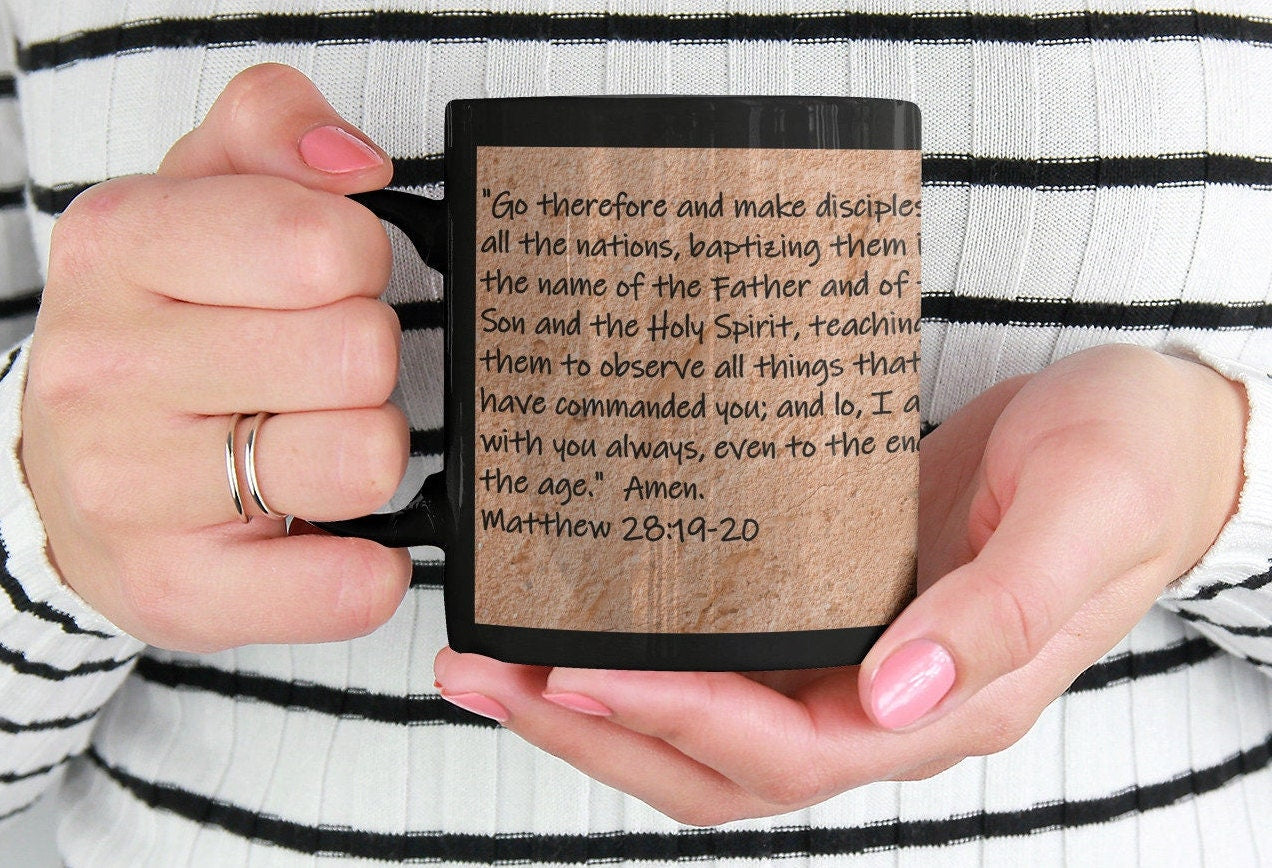 "Go therefore and make disciples
all the nations, baptizing them
the name of the Father and of
Son and the Holy Spirit, teaching
them to observe all things that
have commanded you; and lo, I
with you always, even to the end
the age." Amen.
Matthew 28:19-20